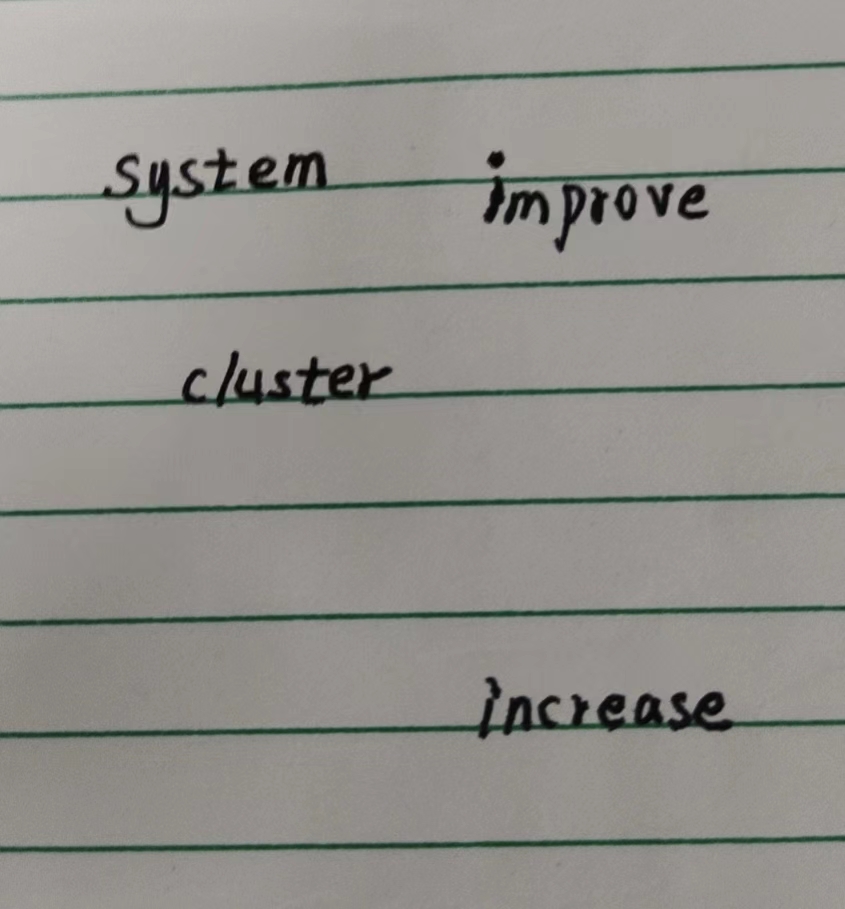 system improve
cluster
increase